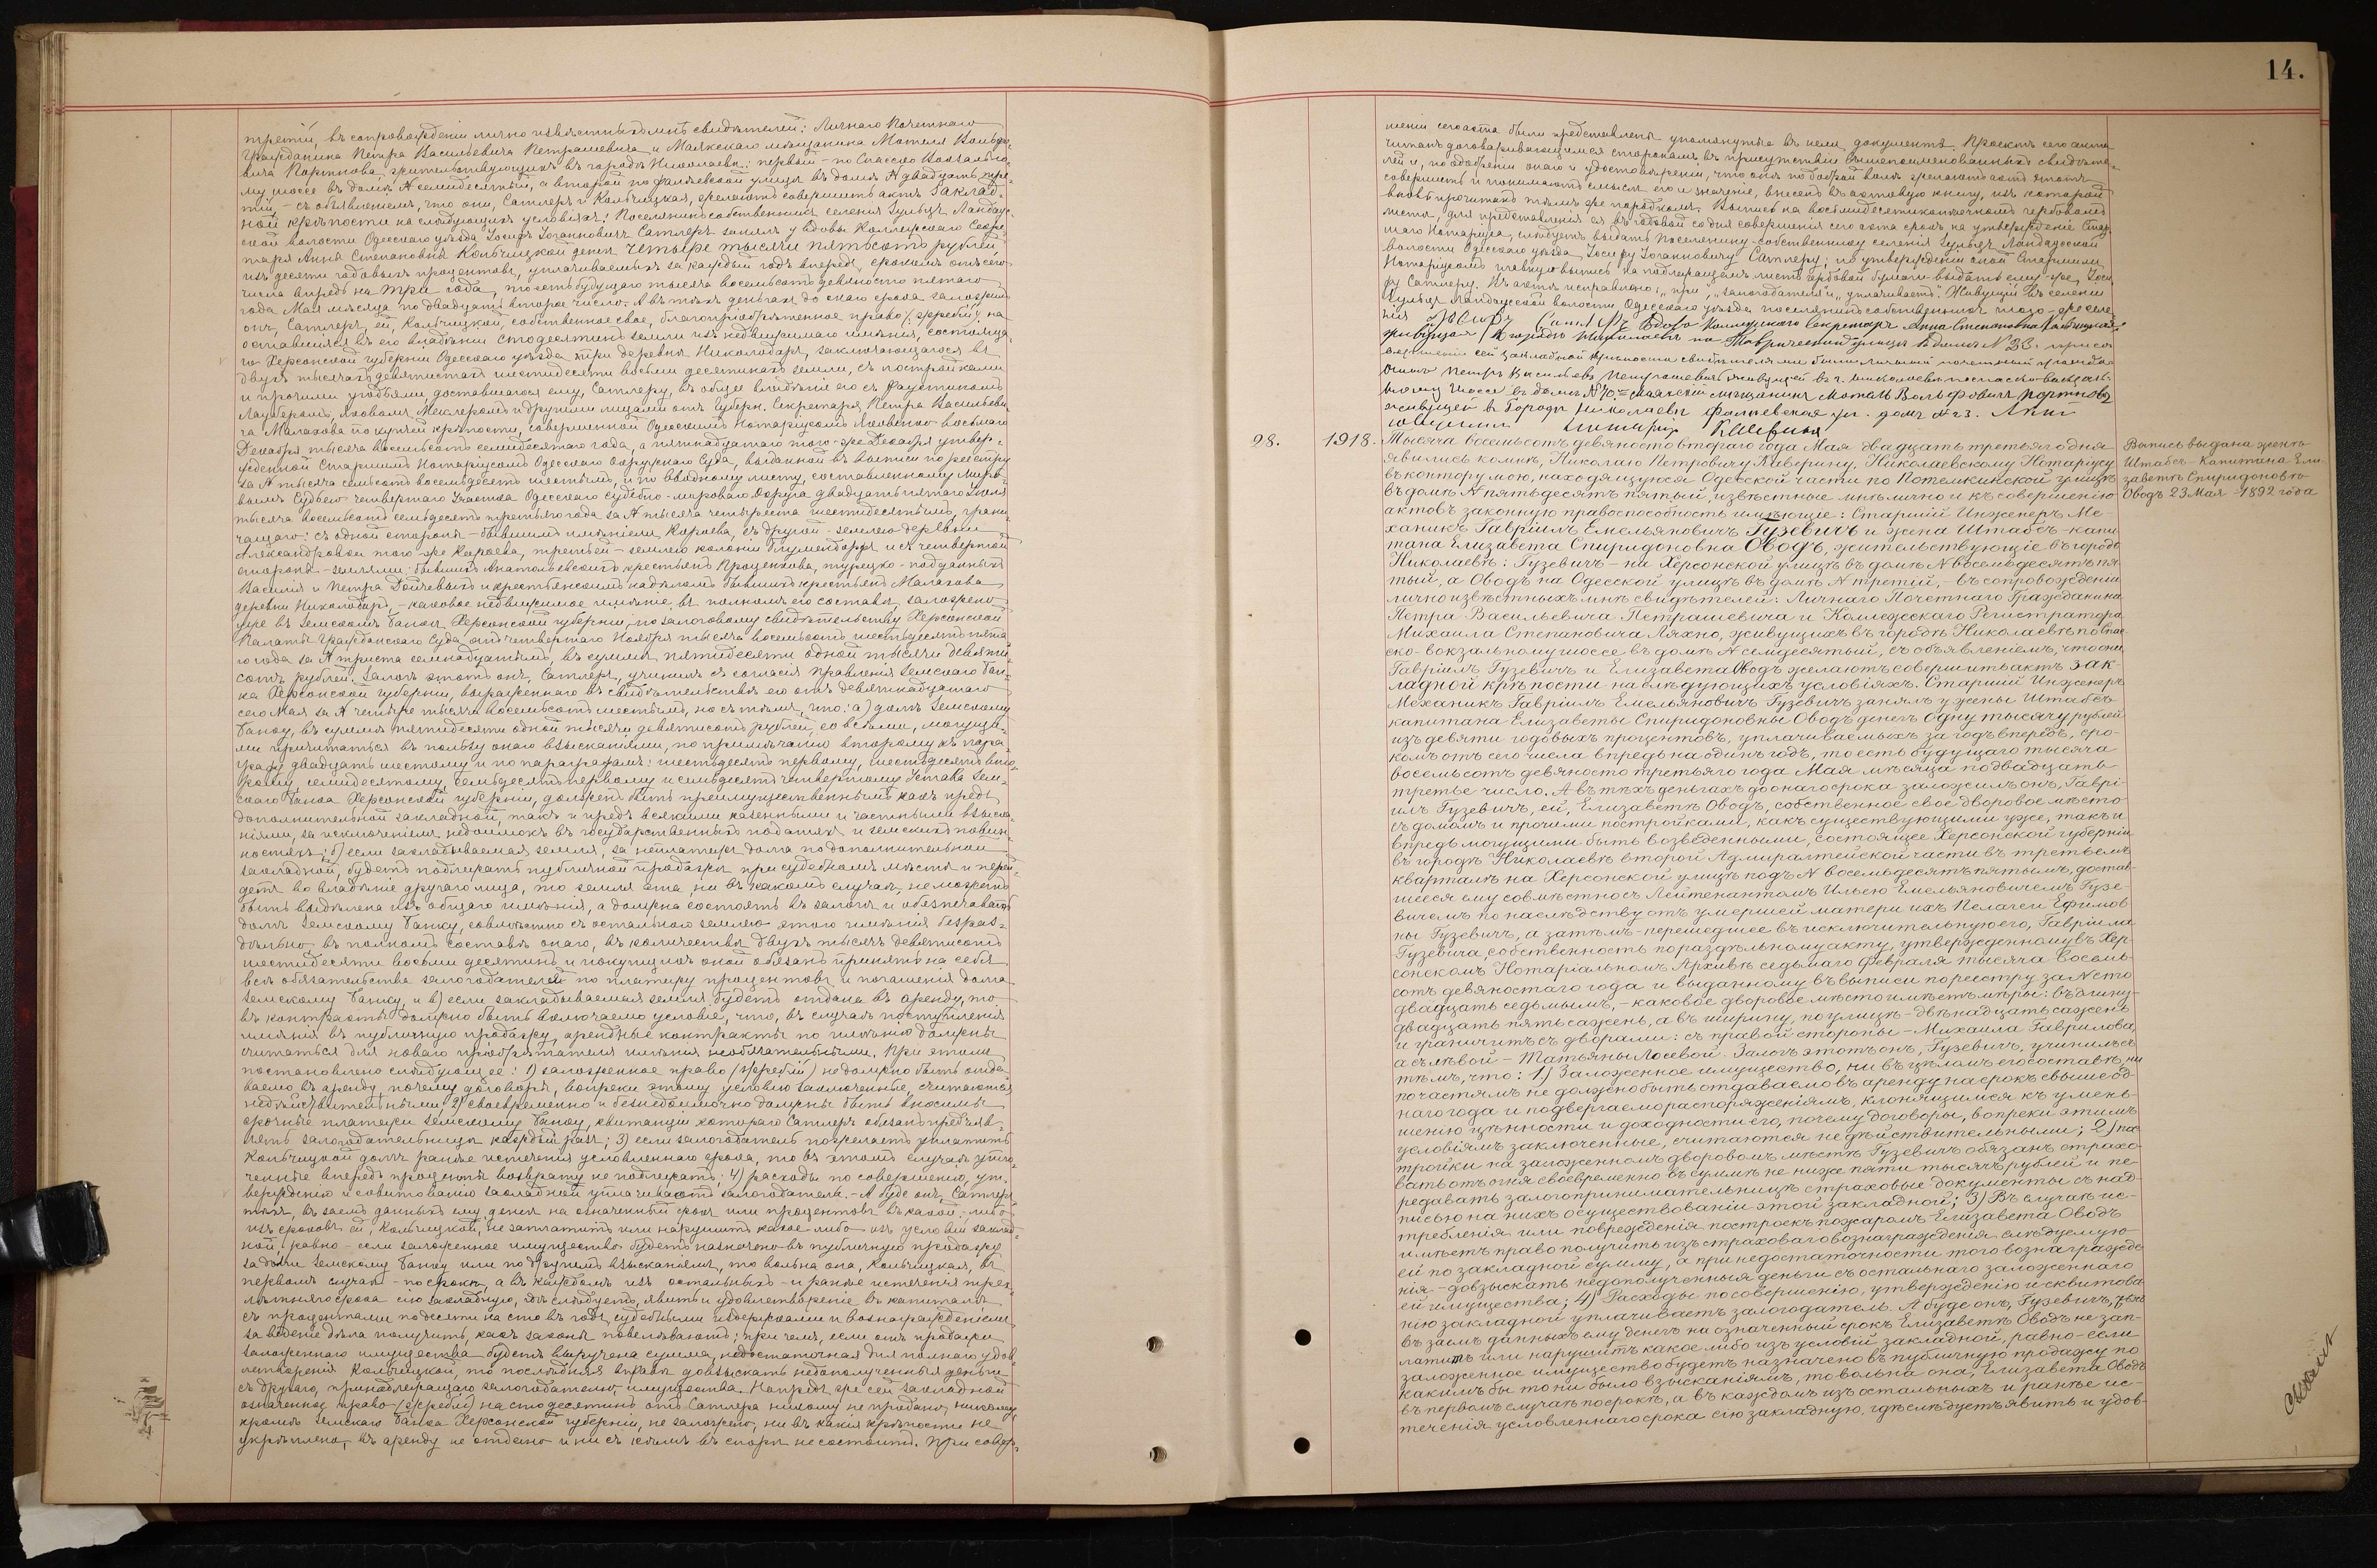 третій, въ сопровожденіи лично извѣстныхъ мнѣ свидѣтелей: Личнаго Почетнаго
Гражданина Петра Васильевича Петрашевича и Маякскаго мѣщанина Мотеля Вольфо-
вича Портнова, жительствующихъ въ городѣ Николаевѣ: первый - по Спасско Вокзально-
му шоссе въ домѣ № семидесятый, а второй по Фалѣевской улицѣ въ домѣ № двадцать тре-
тій, - съ объявленіемъ, что они, Сатлеръ и Кольчицкая, желаютъ совершить актъ Заклад-
ной крѣпости на слѣдующихъ условіяхъ: Поселянинъ собственникъ селенія Зульцъ Ландау-
ской волости Одесскаго уѣзда Іосифъ Іоганновичъ Сатлеръ занялъ у вдовы Коллежскаго Секре-
таря Анны Степановны Кольчицкой денег четыре тысячи пятьсотъ рублей
изъ десяти годовыхъ процентовъ, уплачиваемыхъ за каждый годъ впередъ, срокомъ отъ сего
числа впредь на три года, то есть будущаго тысяча восемьсотъ девяносто пятаго
года Мая мѣсяца по двадцать второе число. А въ тѣхъ деньгахъ до онаго срока заложилъ
онъ, Сатлеръ, ей, Кольчицкой, собственное свое, благопріобрѣтенное право /жребій/ на
оставшіяся въ его владѣніи сто десятинъ земли изъ недвижимаго имѣнія, состояща-
го Херсонской губерніи Одесскаго уѣзда при деревнѣ Николодаръ, заключающагося въ
двухъ тысячахъ девятистахъ шестидесяти восьми десятинахъ земли, съ постройками
и прочими угодьями доставшагося ему, Сатлеру, въ общее владѣніе его съ Фаустиномъ
Лаубераномъ, Яковомъ Меклеромъ и другими лицами отъ Губерн. Секретаря Петра Васильеви-
ча Малахова по купчей крѣпости, совершенной Одесскимъ Нотаріусомъ Яновскимъ восьмаго
Декабря тысяча восемьсотъ семидесятаго года, а пятнадцатаго того-же Декабря утвер-
жденной Старшимъ Нотаріусомъ Одесскаго Окружнаго Суда, выданной въ выписи по реестру
за № тысяча семьсотъ восемьдесятъ шестымъ, и по вводному листу, составленному Миро-
вымъ Судьею четвертаго Участка Одесскаго судебно-мироваго округа двадцать пятаго Іюня
тысяча восемьсотъ семьдесятъ третьяго года за № тысяча четыреста шестидесятымъ, грани-
чащаго: съ одной стороны - бывшимъ имѣніемъ Кираева, съ другой - землею деревни
Александровки того же Кираева, третьей - землею колоніи Блумендорфъ и съ четвертой
стороны - землями: бывшихъ Анатольевскихъ крестьянъ Проценкова, турецко-подданныхъ
Василія и Петра Дойчевыхъ и крестьянскимъ надѣломъ бывшихъ крестьянъ Малахова
деревни Николодаръ, - каковое недвижимое имѣніе, въ полномъ его составѣ, заложено
уже въ Земскомъ Банкѣ Херсонской губерніи, по залоговому свидѣтельству Херсонской
Палаты Гражданскаго Суда, отъ четвертаго Ноября тысяча восемьсотъ шестьдесятъ пята-
го года за № триста семнадцатымъ, въ суммѣ пятидесяти одной тысячи девяти-
сотъ рублей. Залогъ этотъ онъ, Сатлеръ, учинилъ съ согласія правленія Земскаго Бан-
ка Херсонской губерніи, выраженнаго въ свидѣтельствѣ его отъ девятнадцатаго
сего Мая за № четыре тысячи восемьсотъ шестымъ, но съ тѣмъ, что: а) долгъ Земскому
Банку, въ суммѣ пятидесяти одной тысячи девятисотъ рублей, со всѣми, могуща-
ми причитаться въ пользу онаго взысканіями, по примѣчанію второму къ пара-
графу двадцать шестому и по параграфамъ: шестьдесятъ первому, шестьдесятъ вто-
рому, семидесятому, семьдесятъ первому и семьдесятъ четвертому Устава Зем-
скаго Банка Херсонской губерніи, долженъ быть преимущественнымъ какъ предъ
дополнительной закладной, такъ и предъ всякими казенными и частными взыска-
ніями, за исключеніемъ недоимокъ въ государственныхъ податяхъ и земскихъ повин-
ностяхъ; б) если закладываемая земля, за неплатежъ долга по дополнительной
закладной, будетъ подлежать публичной продажѣ при судебномъ мѣстѣ и перей-
детъ во владѣніе другаго лица, то земля эта ни въ какомъ случаѣ, не можетъ
быть выдѣлена изъ общаго имѣнія, а должна состоять въ залогѣ и обезпечивать
долгъ Земскому Банку, совмѣстно съ остальною землею этого имѣнія безраз-
дѣльно, въ полномъ составѣ онаго, въ количествѣ двухъ тысячъ девятисотъ
шестидесяти восьми десятинъ и покупщикъ оной обязанъ принять на себя
всѣ обязательства залогодателей по платежу процентовъ и погашенія долга
Земскому Банку, и в) если закладываемая земля будетъ отдана въ аренду, то
въ контрактѣ должно быть включаемо условіе, что, въ случаѣ поступленія
имѣнія въ публичную продажу, арендные контракты по имѣнію должны
считаться для новаго пріобрѣтателя имѣнія необязательными. При этомъ
постановлено слѣдующее: 1) заложенное право (жребій) не должно быть отда-
ваемо въ аренду, почему договоры, вопреки этому условію заключенные, считаются
недѣйствительными; 2) своевременно и безнедоимочно должны быть вносимы
срочные платежи Земскому Банку, квитанціи котораго Сатлеръ обязанъ предъяв-
лять залогодательницѣ каждый разъ; 3) если залогодатель пожелаетъ уплатить
Кольчицкой долгъ ранѣе истеченія условленнаго срока, то въ этомъ случаѣ упла-
ченные впередъ проценты возврату не подлежатъ; 4) расходы по совершенію, ут-
вержденію и сквитованію закладной уплачиваетъ залогодатель. - А буде онъ, Сатлеръ
тѣхъ, въ заемъ данныхъ ему, денегъ на означенный срокъ или процентовъ въ какой-либо
изъ сроковъ ей, Кольчицкой, не заплатитъ или нарушитъ какое либо изъ условій заклад-
ной, равно - если заложенное имущество будетъ назначено въ публичную продажу
за долгъ Земскому Банку или по другимъ взысканіямъ, то вольна она, Кольчицкая, въ
первомъ случаѣ - по срокѣ, а въ каждомъ изъ остальныхъ - и ранѣе истеченія трех-
лѣтняго срока сію закладную, гдѣ слѣдуетъ, явить и удовлетвореніе въ капиталѣ
съ процентами по десяти на сто въ годъ, судебными издержками и вознагражденіемъ
за веденіе дѣла получить, какъ законы повелѣваютъ; при чемъ, если отъ продажи
заложеннаго имущества будетъ выручена сумма, недостаточная для полнаго удов-
летворенія Кольчицкой, то послѣдняя вправѣ довзыскать недополученныя деньги
съ другаго, принадлежащаго залогодателю имущества. Напредь же сей закладной
означенное право - (жребій) на сто десятинъ отъ Сатлера никому не продано, никому,
кромѣ Земскаго Банка Херсонской губерніи, не заложено, ни въ какія крѣпости не
укрѣплено, въ аренду не отдано и ни съ кѣмъ въ спорѣ не состоитъ. При совер-
14.
шеніи сего акта были представлены упомянутые въ немъ документы. Проектъ сего акта
читанъ договаривающимся сторонамъ въ присутствіи вышепоименованныхъ свидѣте-
лей и, по одобреніи онаго и удостовѣреніи, что они по доброй волѣ желаютъ актъ этотъ
совершить и понимаютъ смыслъ его и значеніе, внесенъ въ актовую книгу, изъ которой
вновь прочитанъ тѣмъ же порядкомъ. Выпись на восьмидесятикопѣечномъ гербовомъ
листѣ, для представленія ея въ годовой со дня совершенія сего акта срокъ на утвержденіе Стар-
шаго Нотаріуса, слѣдуетъ выдать Поселянину-собственнику селенія Зульцъ Ландауской
волости Одесскаго уѣзда Іосифу Іоганновичу Сатлеру; по утвержденіи оной Старшимъ
Нотаріусомъ главную выпись на подлежащемъ листѣ гербовой бумаги выдать ему-же, Іоси-
фу Сатлеру. Въ актѣ исправлено: „при“, „залогодателя“ и „уплачиваетъ“. Живущій въ селеніи
Зульцъ Ландауской волости Одесскаго уѣзда поселянинъ собственникъ того-же селе-
нія Іосифъ Сатлеръ Вдова Коллежскаго Секретаря Анна Степановна Кольчицкая
живущая въ городѣ Николаевѣ по Таврической улицѣ въ домѣ № 23. при со-
вершеніи сей закладной крѣпости свидѣтелями были: личный почетный гражда-
нинъ Петръ Васильевъ Петрашевичъ живущей въ г. Николаевѣ по спасско-вокзаль-
ному шоссе въ домѣ № 70. Маякскій мѣщанинъ Мотель Вольфовичъ Портновъ
живущей въ городѣ Николаевѣ Фалѣевская ул. домъ № 23.
Нотаріусъ Каверинъ
28. 1918. Тысяча восемьсотъ девяносто втораго года Мая двадцать третьяго дня
явились ко мнѣ, Николаю Петровичу Каверину, Николаевскому Нотаріусу
въ контору мою, находящуюся Одесской части по Потемкинской улицѣ
въ домѣ № пятьдесятъ пятый, извѣстные мнѣ лично и къ совершенію
актовъ законную правоспособность имѣющіе: Старшій Инженеръ Ме-
ханикъ Гавріилъ Емельяновичъ Гузевичъ и жена Штабсъ-капи-
тана Елизавета Спиридоновна Ободъ, жительствующіе въ городѣ
Николаевѣ: Гузевичъ - на Херсонской улицѣ въ домѣ № восемьдесятъ пя-
тый, а Ободъ на Одесской улицѣ въ домѣ № третій, - въ сопровожденіи
лично извѣстныхъ мнѣ свидѣтелей: Личнаго Почетнаго Гражданина
Петра Васильевича Петрашевича и Коллежскаго Регистратора
Михаила Степановича Ляхно, живущихъ въ городѣ Николаевѣ по Спас-
ско-вокзальному шоссе въ домѣ № семидесятый, съ объявленіемъ, что они
Гавріилъ Гузевичъ и Елизавета Ободъ желаютъ совершить актъ зак-
ладной крѣпости на слѣдующихъ условіяхъ. Старшій Инженеръ
Механикъ Гавріилъ Емельяновичъ Гузевичъ занялъ у жены Штабсъ
капитана Елизаветы Спиридоновны Ободъ денегъ одну тысячу рублей
изъ девяти годовыхъ процентовъ, уплачиваемыхъ за годъ впередъ, сро-
комъ отъ сего числа впредь на одинъ годъ, то есть будущаго тысяча
восемьсотъ девяносто третьяго года Мая мѣсяца по двадцать
третье число. А въ тѣхъ деньгахъ до онаго срока заложилъ онъ, Гаврі-
илъ Гузевичъ, ей, Елизаветѣ Ободъ, собственное свое дворовое мѣсто
съ домомъ и прочими постройками, какъ существующими уже, такъ и
впредь могущими быть возведенными, состоящее Херсонской губерніи
въ городѣ Николаевѣ второй Адмиралтейской части въ третьемъ
кварталѣ на Херсонской улицѣ подъ № восемьдесятъ пятымъ, достав-
шееся ему совмѣстно съ Лейтенантомъ Ильею Емельяновичемъ Гузе-
вичемъ по наслѣдству отъ умершей матери ихъ Пелагеи Ефимов-
ны Гузевичъ, а затѣмъ - перешедшее въ исключительную его, Гавріила
Гузевича, собственность по раздѣльному акту, утвержденному въ Хер-
сонскомъ Нотаріальномъ Архивѣ седьмаго Февраля тысяча восемь-
сотъ девяностаго года и выданному въ выписи по реестру за № сто
двадцать седьмымъ, - каковое дворовое мѣсто имѣетъ мѣры: въ длину
двадцать пять сажень, а въ ширину, по улицѣ - двѣнадцать сажень
и граничитъ съ дворами: съ правой стороны - Михаила Гаврилова,
а съ лѣвой - Татьяны Лосевой. Залогъ этотъ онъ, Гузевичъ, учинилъ съ
тѣмъ, что: 1) Заложенное имущество, ни въ цѣломъ его составѣ, ни
по частямъ не должно быть отдаваемо въ аренду на срокъ свыше од-
наго года и подвергаемо распоряженіямъ, клонящимся къ умень-
шенію цѣнности и доходности его, почему договоры, вопреки этимъ
условіямъ заключенные, считаются недѣйствительными; 2) пос-
тройки на заложенномъ дворовомъ мѣстѣ Гузевичъ обязанъ страхо-
вать отъ огня своевременно въ суммѣ не ниже пяти тысячъ рублей и пе-
редавать залогопринимательницѣ страховые документы съ над-
писью на нихъ о существованіи этой закладной; 3) Въ случаѣ ис-
требленія или поврежденія построекъ пожаромъ Елизавета Ободъ
имѣетъ право получить изъ страховаго вознагражденія слѣдуемую
ей по закладной сумму, а при недостаточности того вознагражде-
нія - довзыскать недополученныя деньги съ остальнаго заложеннаго
ей имущества; 4) Расходы по совершенію, утвержденію и сквитова-
нію закладной уплачиваетъ залогодатель. А буде онъ, Гузевичъ, тѣхъ
въ заемъ данныхъ ему денегъ на означенный срокъ Елизаветѣ Ободъ не зап-
латитъ или нарушитъ какое либо изъ условій закладной, равно - если
заложенное имущество будетъ назначено въ публичную продажу по
какимъ бы то ни было взысканіямъ, то вольна она, Елизавета Ободъ
въ первомъ случаѣ по срокѣ, а въ каждомъ изъ остальныхъ и ранѣе ис-
теченія условленнаго срока сію закладную, гдѣ слѣдуетъ явить и удов-
Выпись выдана женѣ
Штабсъ-Капитана Ели-
заветѣ Спиридоновнѣ
Ободъ 23 Мая 1892 года